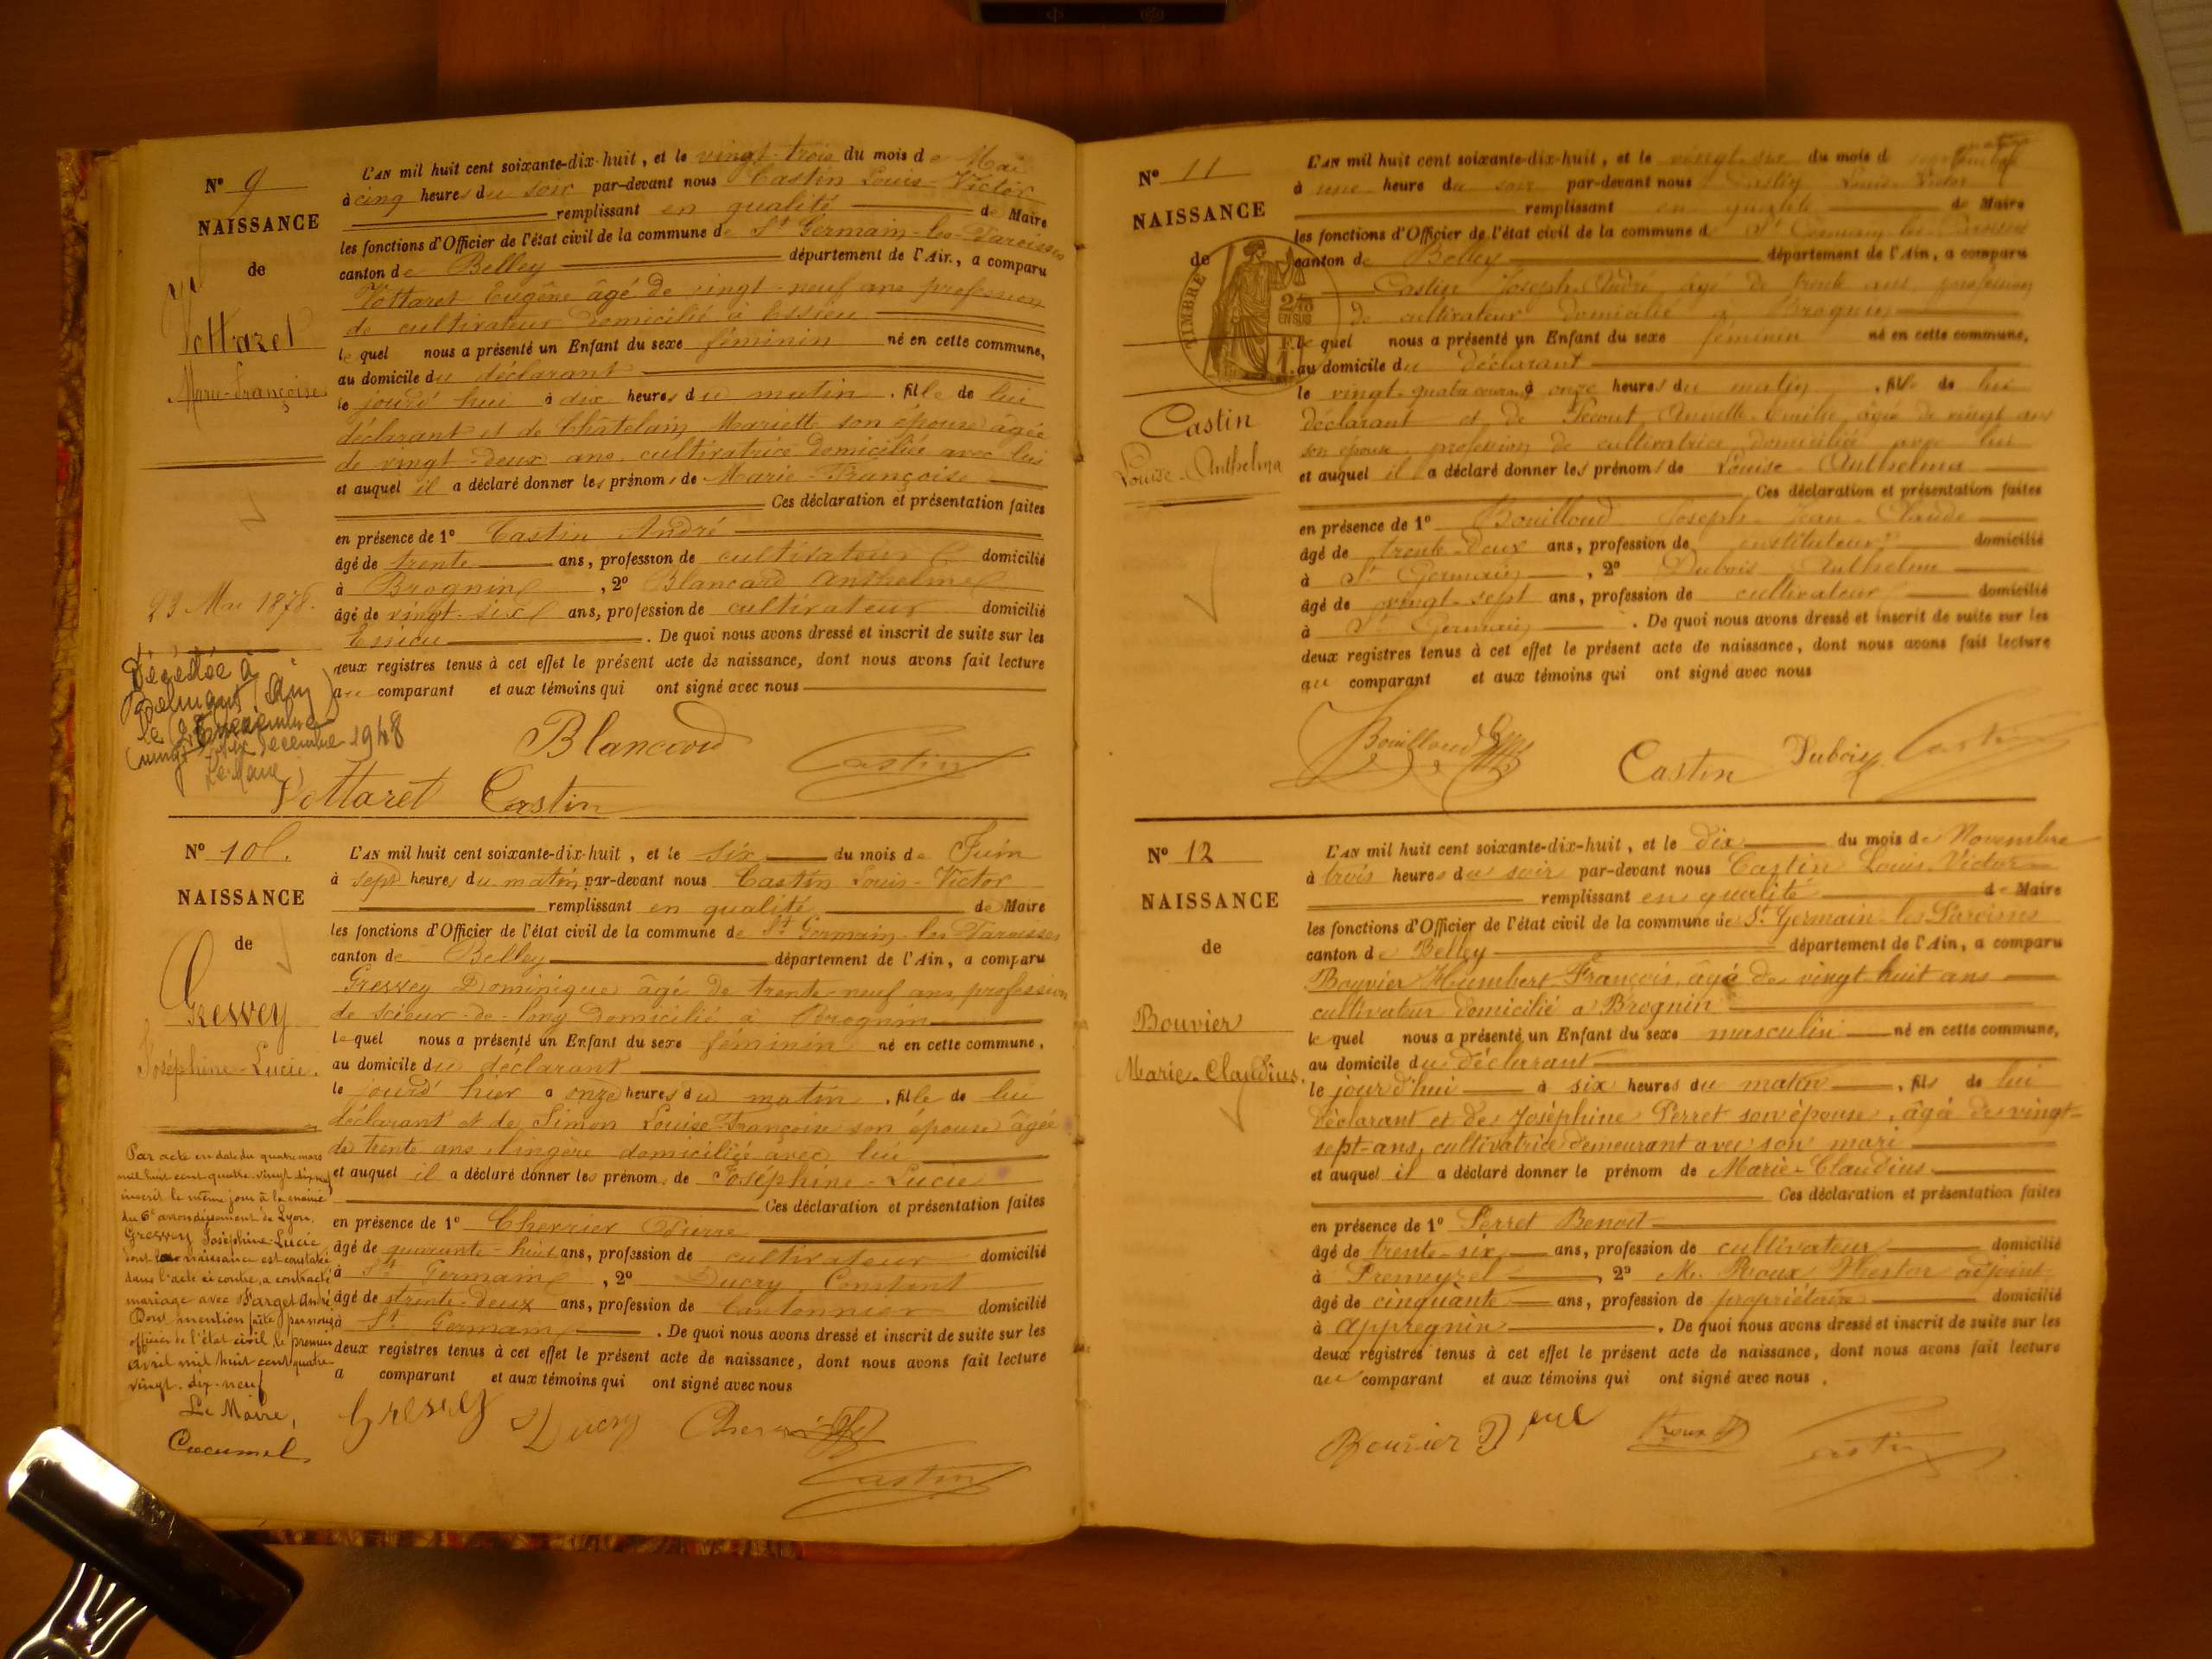 N° 9
NAISSANCE
de
Vottaret
Marie-Françoise
23 Mai 1878.
Décédée à
Belmont (Ain)
le
décembre 1948
Le Maire,
L'AN mil huit cent soixante-dix-huit, et le vingt-trois du mois de Mai
à cinq heures du soir par-devant nous Castin Louis-Victor
remplissant en qualité de Maire
les fonctions d'Officier de l'état civil de la commune de St Germain-les-Paroisses
canton de Belley département de l'Ain, a comparu
Vottaret Eugène âgé de vingt-neuf ans profession
de cultivateur domicilié à Essieu
le quel nous a présenté un Enfant du sexe féminin né en cette commune,
au domicile du déclarant
le jourd'hui à dix heures du matin, fille de lui
déclarant et de Châtelain Mariette son épouse âgée
de vingt-deux ans cultivatrice domiciliée avec lui
et auquel il a déclaré donner les prénoms de Marie-Françoise
Ces déclaration et présentation faites
en présence de 1° Castin André
âgé de trente ans, profession de cultivateur domicilié
à Brognin, 2° Blancard Anthelme
âgé de vingt-six ans, profession de cultivateur domicilié
Essieu. De quoi nous avons dressé et inscrit de suite sur les
deux registres tenus à cet effet le présent acte de naissance, dont nous avons fait lecture
au comparant et aux témoins qui ont signé avec nous
Blancard
Castin
Vottaret Castin
N° 10
NAISSANCE
de
Gressey
Joséphine-Lucie.
Par acte en date du quatre mars
mil huit cent quatre-vingt dix neuf
inscrit le même jour à la mairie
du 6e arrondissement de Lyon,
Gressey Joséphine-Lucie
dont la naissance est constatée
dans l'acte ci contre, a contracté
mariage avec Farget André.
Dont mention faite par nous
officier de l'état civil le premier
avril mil huit cent quatre
vingt-dix-neuf
Le Maire,
L'AN mil huit cent soixante-dix-huit, et le six du mois de Juin
à sept heures du matin par-devant nous Castin Louis-Victor
remplissant en qualité de Maire
les fonctions d'Officier de l'état civil de la commune de St Germain-les-Paroisses
canton de Belley département de l'Ain, a comparu
Gressey Dominique âgé de trente-neuf ans profession
de scieur-de-long domicilié à Brognin
le quel nous a présenté un Enfant du sexe féminin né en cette commune,
au domicile du déclarant
le jourd'hier à onze heures du matin, fille de lui
déclarant et de Simon Louise-Françoise son épouse âgée
de trente ans lingère domiciliée avec lui
et auquel il a déclaré donner les prénom de Joséphine-Lucie
Ces déclaration et présentation faites
en présence de 1° Chervier Pierre
âgé de quarante-huit ans, profession de cultivateur domicilié
à St Germain, 2° Ducry Constant
âgé de trente-deux ans, profession de Cantonnier domicilié
à St Germain. De quoi nous avons dressé et inscrit de suite sur les
deux registres tenus à cet effet le présent acte de naissance, dont nous avons fait lecture
a comparant et aux témoins qui ont signé avec nous
Gressey Ducry
Castin
N° 11
NAISSANCE
de
TIMBRE
Castin
Louise-Anthelma
L'AN mil huit cent soixante-dix-huit, et le vingt-six du mois d
à une heure du soir par-devant nous Castin Louis-Victor
remplissant en qualité de Maire
les fonctions d'Officier de l'état civil de la commune de St Germain-les-Paroisses
canton de Belley département de l'Ain, a comparu
Castin Joseph-André âgé de trente ans, profession
de cultivateur domicilié à Brognin
le quel nous a présenté un Enfant du sexe féminin né en cette commune,
au domicile du déclarant
le vingt-quatre courant à onze heures du matin, fille de lui
déclarant et de Annette-Emélie âgée de vingt ans
son épouse, profession de cultivatrice domiciliée avec lui
et auquel il a déclaré donner les prénoms de Louise-Anthelma
Ces déclaration et présentation faites
en présence de 1° Bouilloud Joseph-Jean-Claude
âgé de trente-deux ans, profession de instituteur domicilié
à St Germain, 2° Dubois Anthelme
âgé de vingt-sept ans, profession de cultivateur domicilié
à St Germain. De quoi nous avons dressé et inscrit de suite sur les
deux registres tenus à cet effet le présent acte de naissance, dont nous avons fait lecture
au comparant et aux témoins qui ont signé avec nous
Bouilloud Castin Dubois Castin
N° 12
NAISSANCE
de
Bouvier
Marie-Claudius.
L'AN mil huit cent soixante-dix-huit, et le dix du mois de Novembre
à trois heures du soir par-devant nous Castin Louis-Victor
remplissant en qualité de Maire
les fonctions d'Officier de l'état civil de la commune de St Germain-les-Paroisses
canton de Belley département de l'Ain, a comparu
Bouvier Humbert-François, âgé de vingt-huit ans
cultivateur domicilié à Brognin
le quel nous a présenté un Enfant du sexe masculin né en cette commune,
au domicile du déclarant
le jour d'hui à six heures du matin, fils de lui
déclarant et de Joséphine Perret son épouse, âgée de vingt-
sept-ans, cultivatrice demeurant avec son mari
et auquel il a déclaré donner le prénom de Marie-Claudius
Ces déclaration et présentation faites
en présence de 1° Perret Benoit
âgé de trente-six ans, profession de cultivateur domicilié
à Premeyzel, 2° Mr Roux Nestor adjoint
âgé de cinquante ans, profession de propriétaire domicilié
à Appregnin. De quoi nous avons dressé et inscrit de suite sur les
deux registres tenus à cet effet le présent acte de naissance, dont nous avons fait lecture
au comparant et aux témoins qui ont signé avec nous.
Bouvier Roux Castin